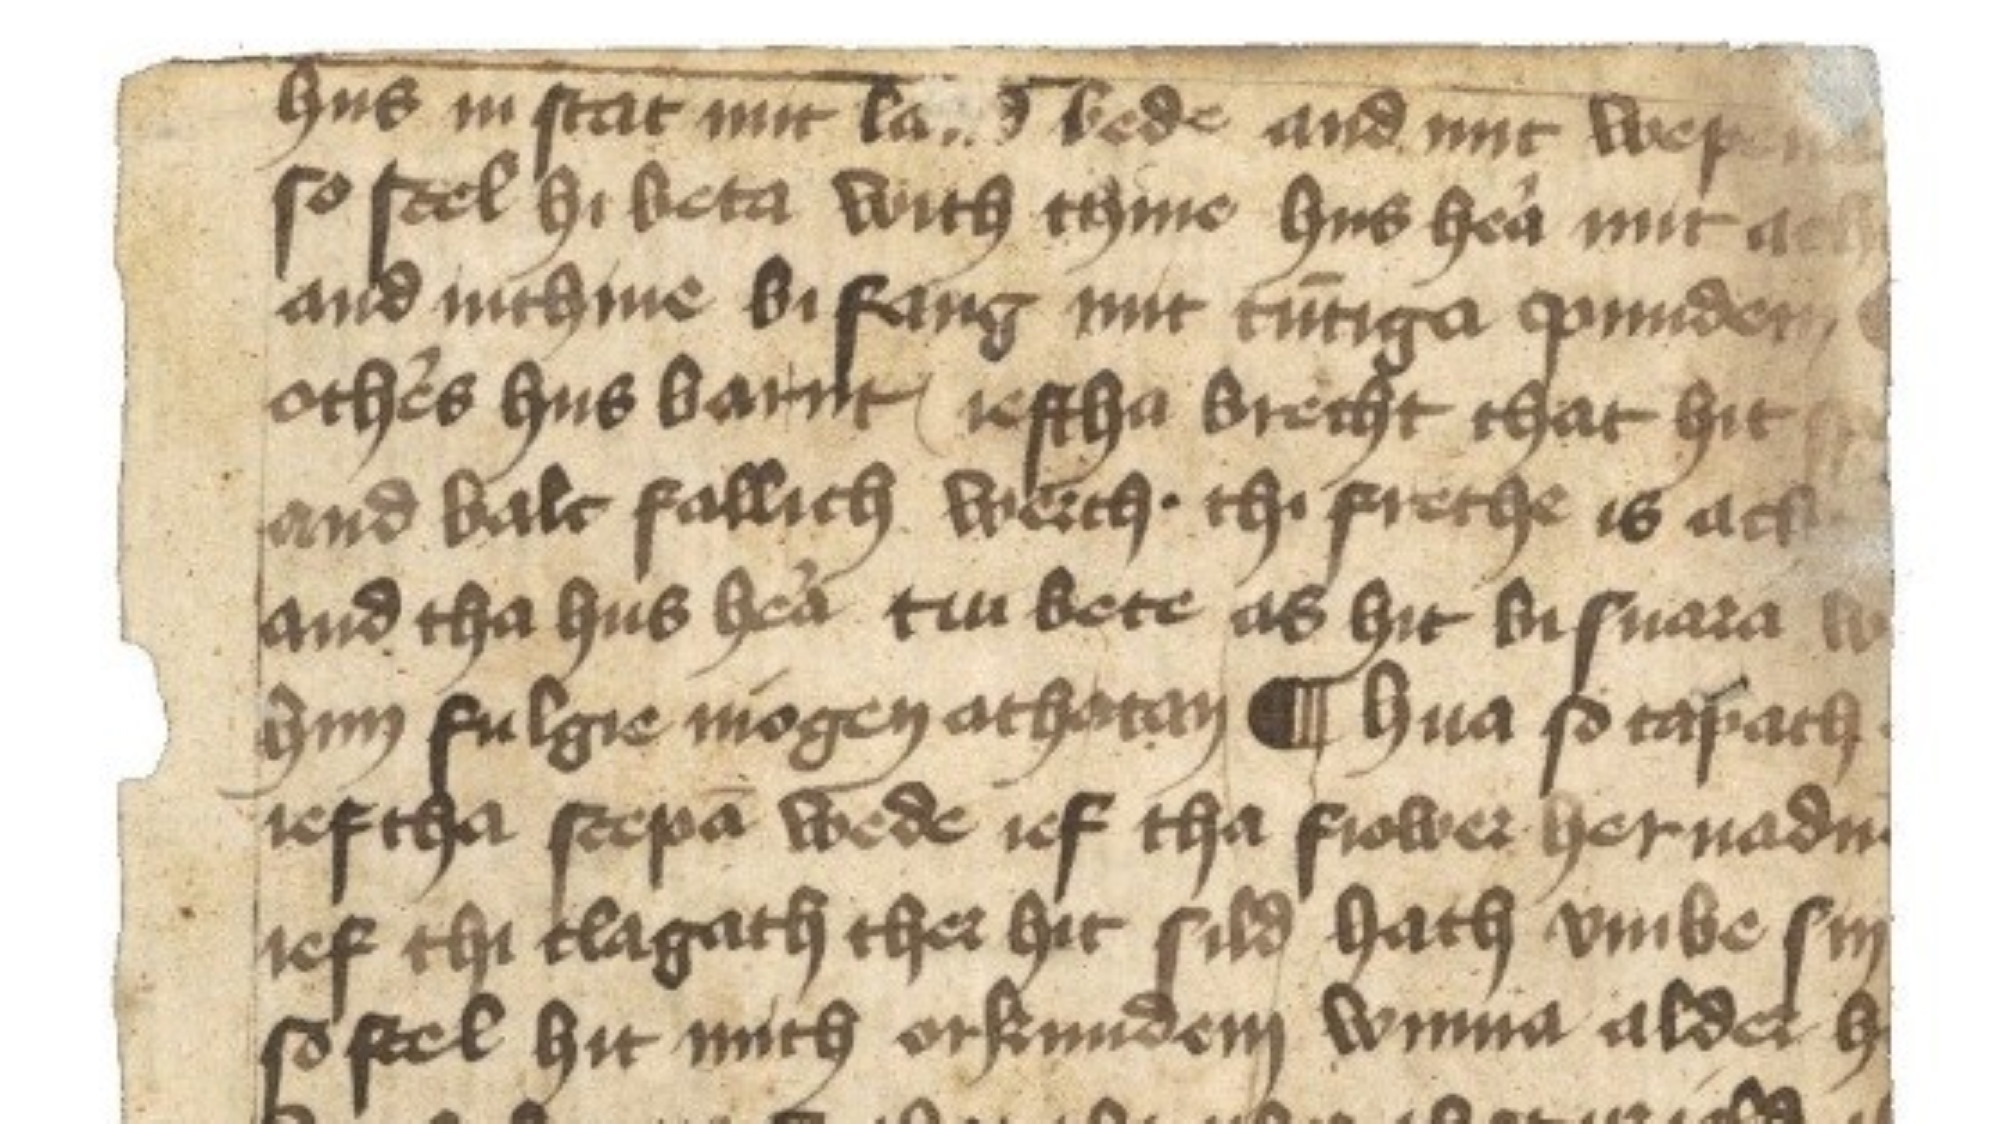 hus in stat mit bede and mit
so scel hi beta with thine hus hera mit
and inthine bi fang mit tūtiga pundem
otheres hus barnt ieftha brecht that hit
and balt fallich werch· thi frethe is
and tha hus hera tiu bete as hit bi suara
him fulgie mogen athatan ¶ Hua so tapath
ieftha scepā wede ief tha frower her
ief thi clagath ther hit sild hath vmbe sin
so scel hit mith orkundem winna alder